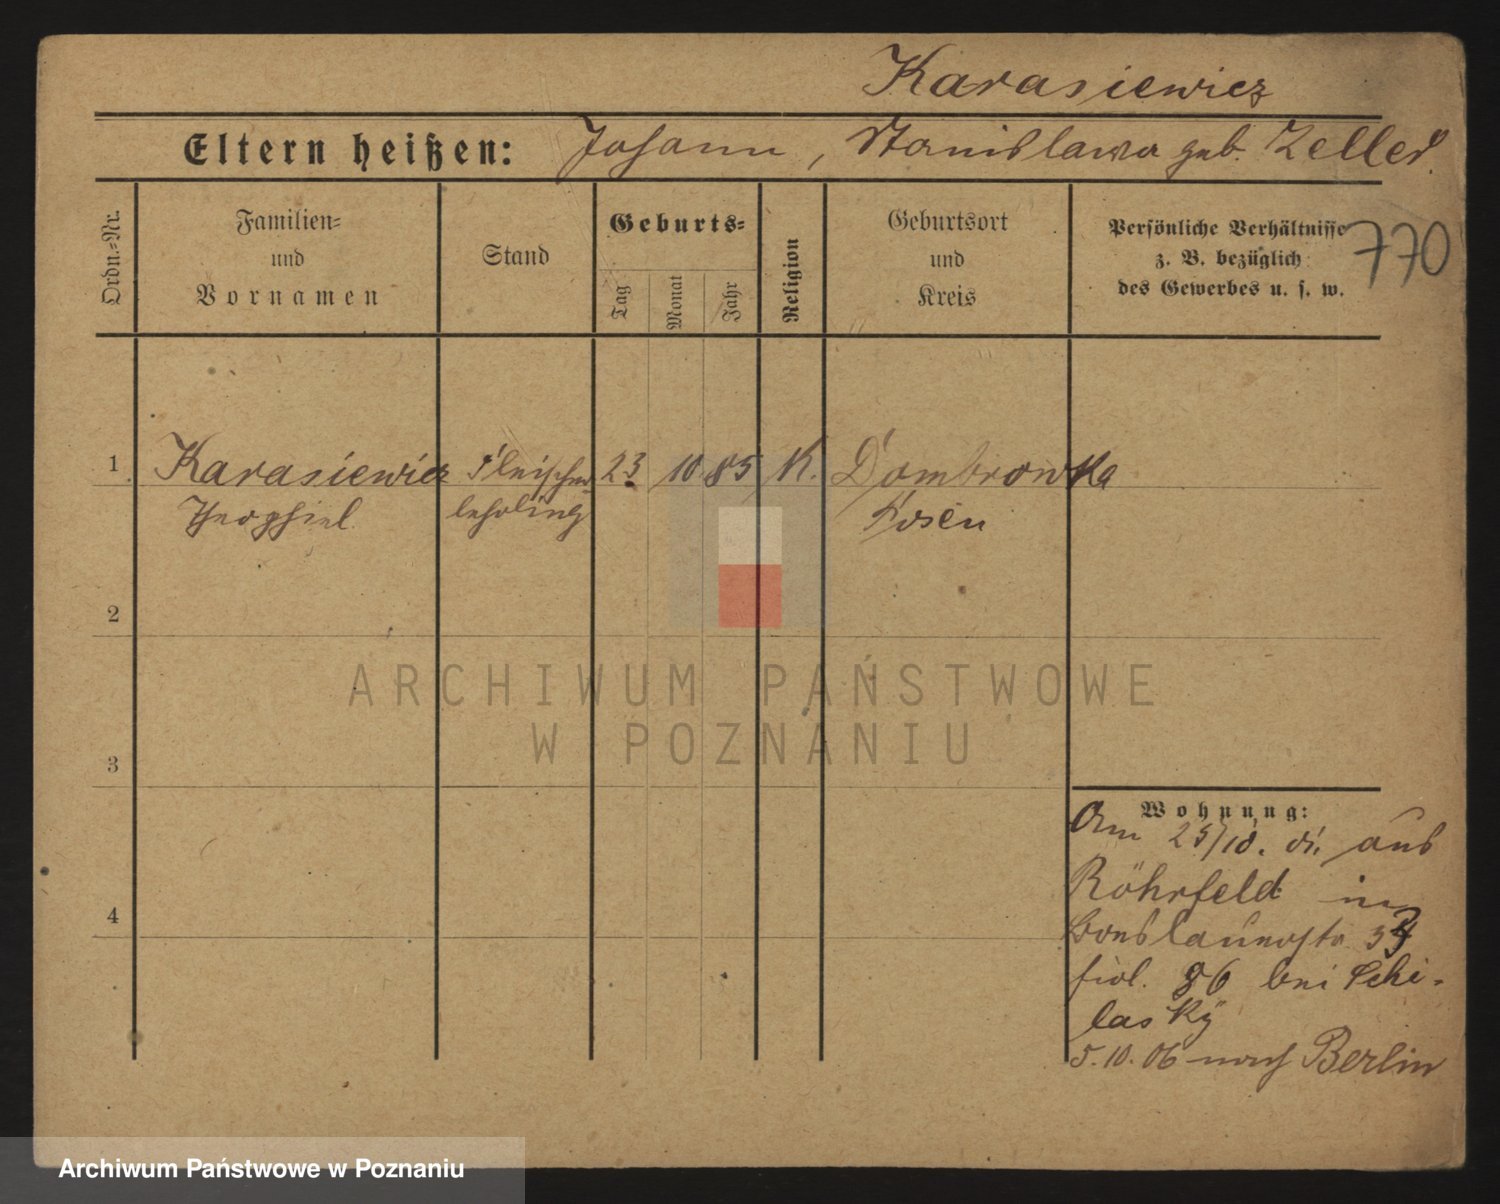 Karasiewicz
Eltern heißen: Johann, Stanislawa geb. Zeller.
Ordn.=Nr.
Familien=
und
Vornamen
Stand
Geburts=
Tag
Monat
Jahr
Religion
Geburtsort
und
Kreis
Persönliche Verhältnisse
z. B. bezüglich
des Gewerbes u. s. w.
770
1 Karasiewicz Fleischer 23 10 85 K. Dombrowka
Theophiel lehrling Posen
2
3
4
Wohnung:
Am 25/10. aus
Röhrfeld in
bei Schi-
lasky
5.10.06 nach Berlin
ARCHIWUM PAŃSTWOWE
W POZNANIU
Archiwum Państwowe w Poznaniu